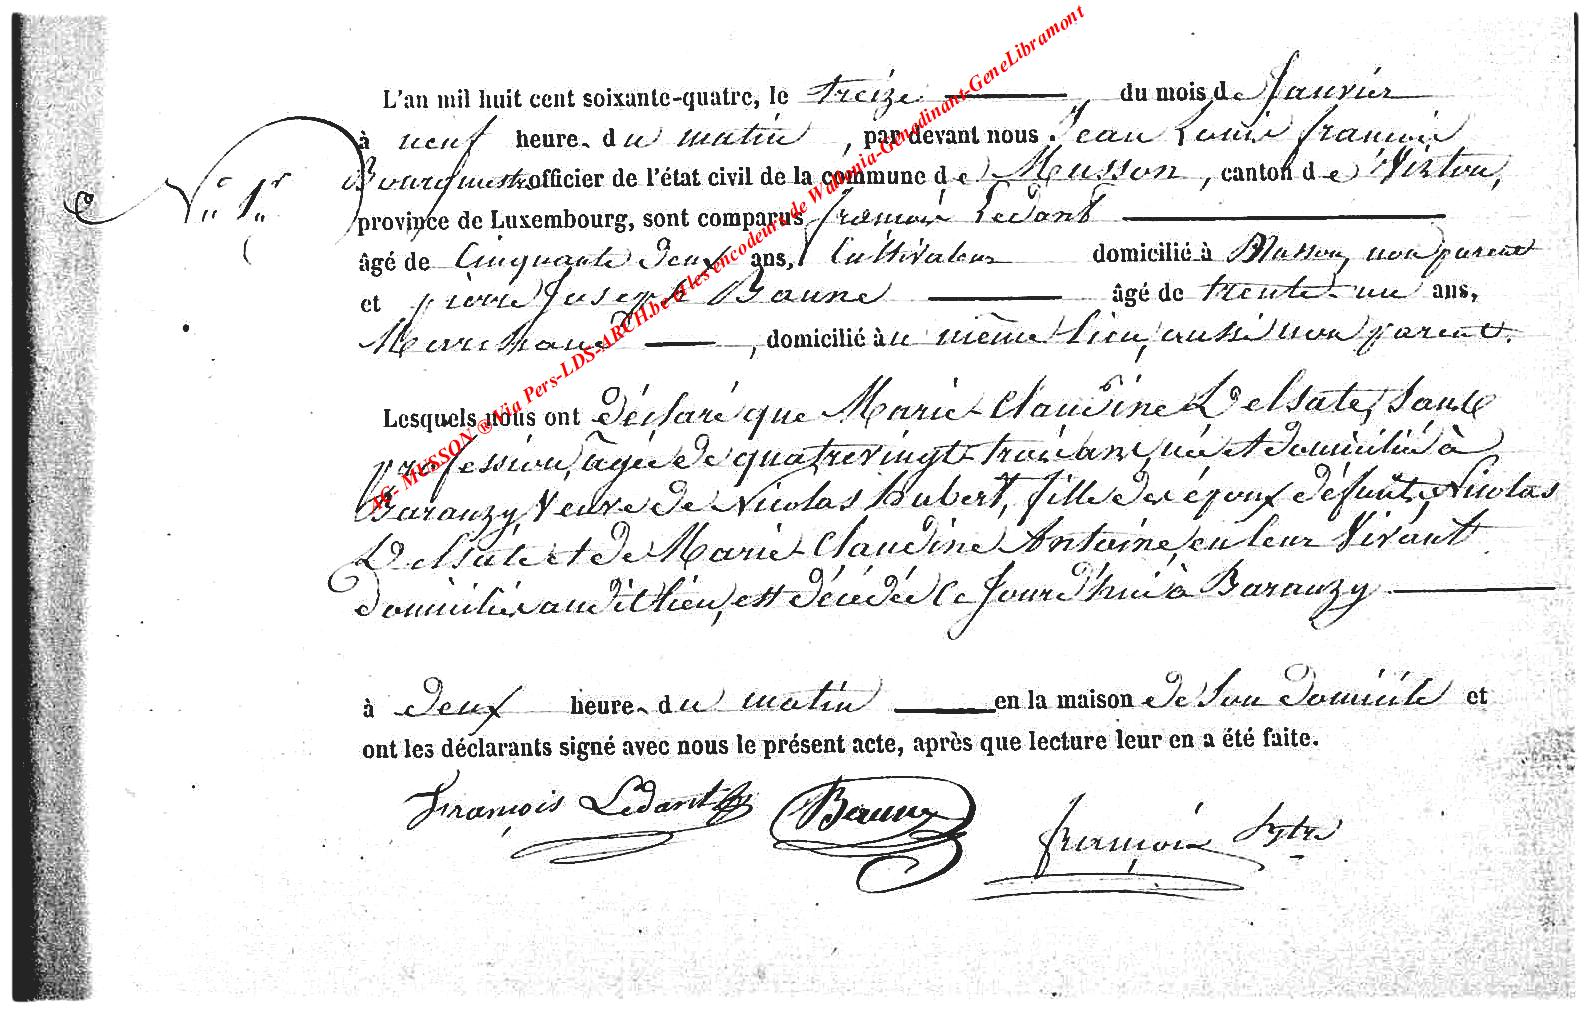 L'an mil huit cent soixante-quatre, le treize du mois de Janvier
à neuf heure du matin, par devant nous Jean Louis françois
Bourgmestre officier de l'état civil de la commune de Musson, canton de Virton,
N° 1er
province de Luxembourg, sont comparus françois Ledant
âgé de Cinquante deux ans, Cultivateur domicilié à Musson, non parent
et pierre Joseph Baune âgé de trente-un ans,
Marchand, domicilié au même lieu, aussi non parent.
Lesquels nous ont déclaré que Marie-Claudine Delsate, sans
profession, âgée de quatrevingt-trois ans, née et domiciliée à
Baranzy, Veuve de Nicolas hubert, fille des époux défunts, Nicolas
Delsate et de Marie-Claudine Antoine, en leur Vivant
domiciliés audit lieu, est décédée ce Jourd'hui à Baranzy
à deux heure du matin en la maison de Son domicile et
ont les déclarants signé avec nous le présent acte, après que lecture leur en a été faite.
François Ledant Baune françois
JG- MUSSON ® Via Pers-LDS-ARCH.be et les encodeurs de Wallonia-Genedinant-GeneLibramont